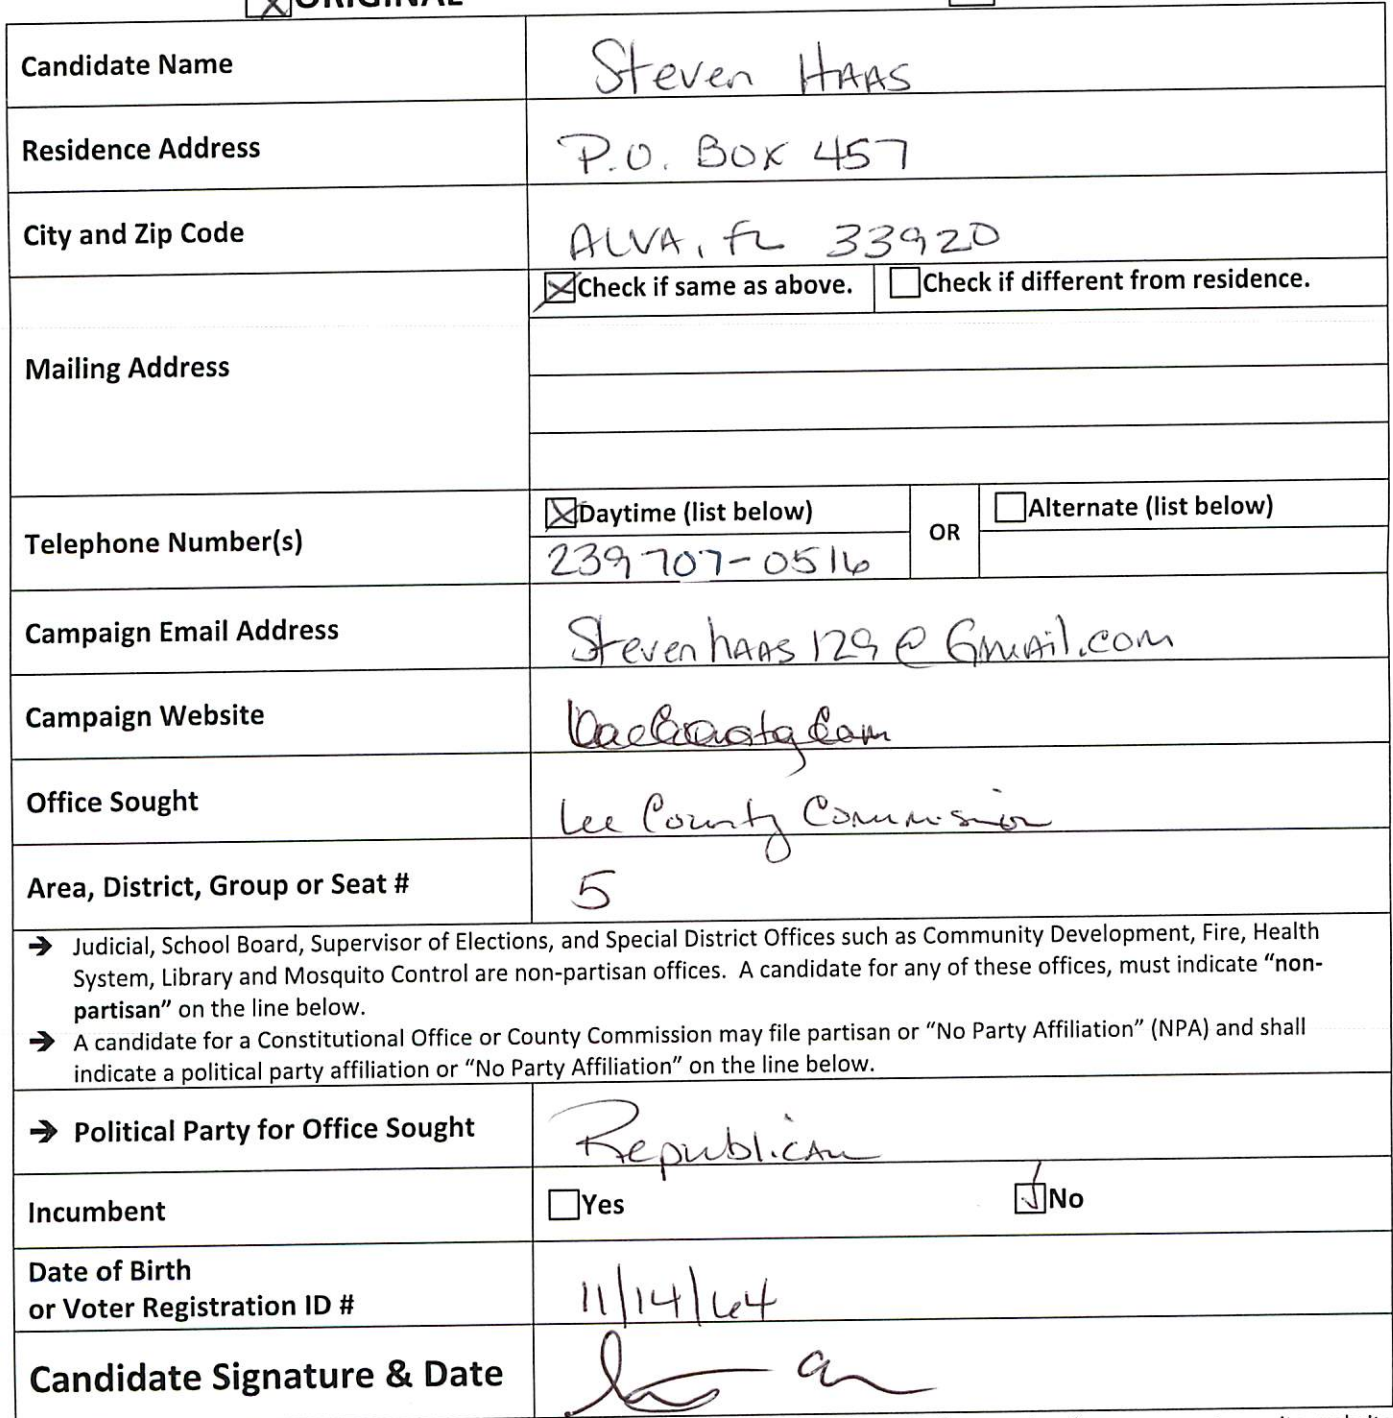 ORIGINAL
Candidate Name Steven HAAS
Residence Address P.O. BOX 457
City and Zip Code ALVA, FL 33920
Check if same as above. Check if different from residence.
Mailing Address
Daytime (list below) OR Alternate (list below)
Telephone Number(s) 239 707-0516
Campaign Email Address StevenhAAS129@Gmail.com
Campaign Website
Office Sought Lee County Commission
Area, District, Group or Seat # 5
→ Judicial, School Board, Supervisor of Elections, and Special District Offices such as Community Development, Fire, Health
System, Library and Mosquito Control are non-partisan offices. A candidate for any of these offices, must indicate “non-
partisan” on the line below.
→ A candidate for a Constitutional Office or County Commission may file partisan or “No Party Affiliation” (NPA) and shall
indicate a political party affiliation or “No Party Affiliation” on the line below.
→ Political Party for Office Sought Republican
Incumbent Yes No
Date of Birth
or Voter Registration ID # 11/14/64
Candidate Signature & Date